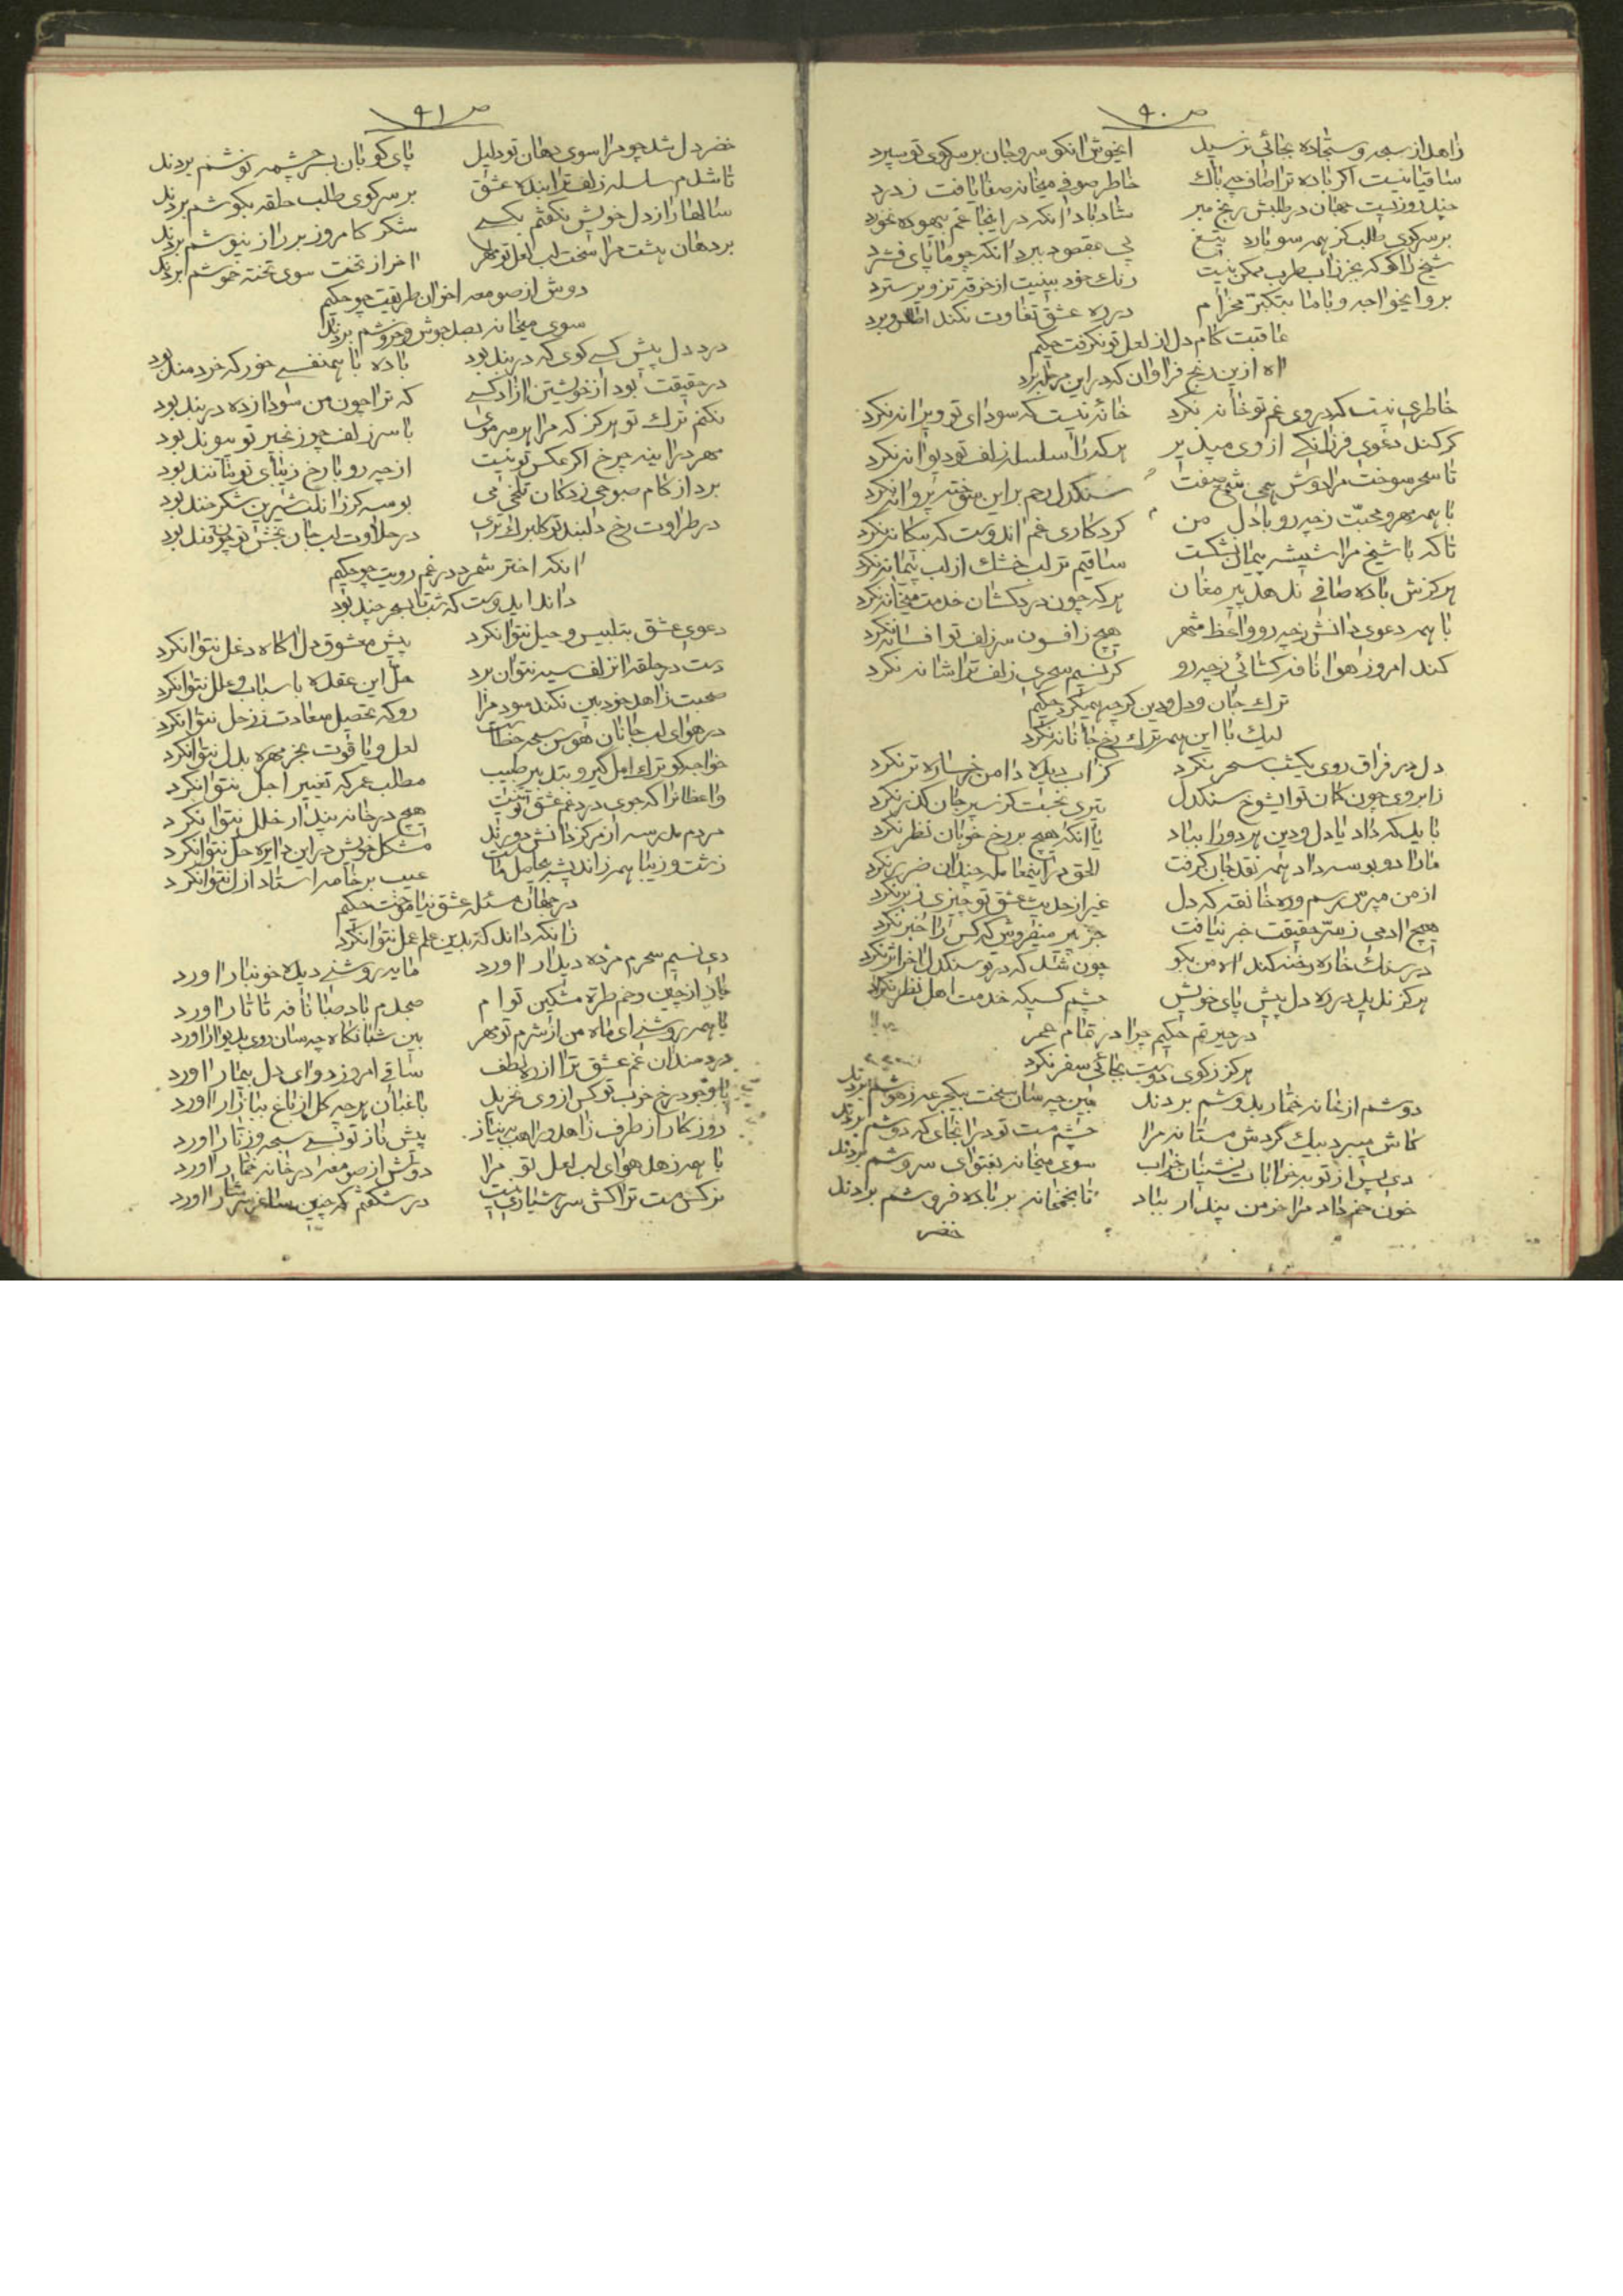 ص ۹۰
زاهد از سبحه و سجاده بجائی نرسید ایخوش انکو سر و جان بر سر کوی تو سپرد
ساقیا نیست اگر باده ترا صاف چه باک خاطر صوفی میخانه صفا یافت ز درد
چند روزیست جهان در طلبش رنج مبر شاد باد انکه در اینجا غم بیهوده نخورد
بر سر کوی طلب کز همه سو بارد تیغ پی مقصود ببرد انکه چو ما پای فشرد
شیخ را کو که بجز زاب طرب ممکن نیست رنک خود بینیت از خرقه تزویر سترد
برو ایخواجه و با ما بتکبر مخرام در ره عشق تفاوت نکند
عاقبت کام دل از لعل تو نکرفت حکیم
اه ازین رنج فراوان که در این مرحله برد
خاطری نیست که در وی غم تو خانه نکرد خانه نیست که سودای تو ویرانه نکرد
کر کند دعوی فرزانکی از وی مپذیر هر که را سلسله زلف تو دیوانه نکرد
تا سحر سوخت مرا دوش همی شمع صفت سنکدل رحم بر این سوخته پروانه نکرد
با همه مهر و محبت ز چه رو با دل من کرد کاری غم اندوست که بیکانه نکرد
تا که با شیخ مرا شیشه پیمان بشکست ساقیم تر لب خشک از لب پیمانه نکرد
هرکزش باده صافی ندهد پیر مغان هر که چون دردکشان خدمت میخانه نکرد
با همه دعوی دانش ز چه رو واعظ شهر هیچ ز افسون سر زلف تو افسانه نکرد
کند امروز هوا نافه کشائی ز چه رو کر نسیم سحری زلف ترا شانه نکرد
ترک جان و دل و دین کر چه همیکرد حکیم
لیک با این همه ترک رخ جانانه نکرد
دل در فراق روی یکشب سحر نکرد کز اب دیده دامن رخساره تر نکرد
ز ابروی چون کمان تو ایشوخ سنکدل تیری نجست کز سپر جان کذر نکرد
باید که داد یا دل و دین هر دو را بباد یا انکه هیچ بر رخ خوبان نظر نکرد
ما را دو بوسه داد همه نقد جان کرفت الحق در اینمعامله چندان ضرر نکرد
از من مپرس رسم و ره خانقه که دل غیر از حدیث عشق تو چیزی ز بر نکرد
هیچ ادمی ز سر حقیقت خبر نیافت جز پیر میفروش که کس را خبر نکرد
در سنک خاره رخنه کند اه من بکو چون شد که در تو سنکدل اخر اثر نکرد
هرکز ندید در ره دل پیش پای خویش چشم کسیکه خدمت اهل نظر نکرد
در حیرتم حکیم چرا در تمام عمر
هرکز ز کوی دوست بجائی سفر نکرد
دوشم از خانه خمار بدوشم بردند بین چه سان سخت بیکجرعه ز هوشم بردند
کاش میبرد بیک گردش مستانه مرا چشم مست تو در انجای که دوشم بردند
دی پس از توبه خراباتنشینان خراب سوی میخانه بفتوای سروشم بردند
خون خم داد مرا خرمن پندار بباد تا بخمخانه بر باده فروشم بردند
خضر
ص ۹۱
خضر دل شد چو مرا سوی دهان تو دلیل پای کوبان بسر چشمه نوشم بردند
تا شدم سلسله زلف ترا بنده عشق بر سر کوی طلب حلقه بکوشم بردند
سالها راز دل خویش نکفتم بکسی شکر کامروز بر راز نیوشم بردند
بر دهان هشت مرا سخت لب لعل تو مهر اخر از تخت سوی تخته خموشم بردند
دوش از صومعه اخوان طریقت چو حکیم
سوی میخانه بصد جوش و خروشم بردند
درد دل پیش کسی کوی که در بند بود باده با همنفسی خور که خردمند بود
در حقیقت بود از خویشتن ازاد کسی که ترا چون من سودا زده در بند بود
نکنم ترک تو هرکز که مرا هر سر موی با سر زلف چو زنجیر تو پیوند بود
مهر در اینه چرخ اکر عکس تو نیست از چه رو با رخ زیبای تو مانند بود
برد از کام صبوحی زدکان تلخی می بوسه کز انلب شیرین شکرخند بود
در طراوت رخ دلبند تو کلبرک تری در حلاوت لب جان بخش تو چون قند بود
انکه اختر شمرد در غم رویت چو حکیم
داند ایدوست که شب تا بسحر چند بود
دعوی عشق بتلبیس و حیل نتوانکرد پیش معشوق دل اکاه دغل نتوانکرد
دست در حلقه انزلف سیه نتوان برد حل این عقده باسباب و علل نتوانکرد
صحبت زاهد خودبین نکند سود مرا رو که تحصیل سعادت ز زحل نتوانکرد
در هوای لب جانان هوس سبحه خطاست لعل و یاقوت بخرمهره بدل نتوانکرد
خواجه کو ترک امل کیر و بتدبیر طبیب مطلب عمر که تغییر اجل نتوانکرد
واعظانرا که جوی درد غم عشق تو نیست هیچ در خانه پندار خلل نتوانکرد
مردم مدرسه از مرکز دانش دورند مشکل خویش در این دایره حل نتوانکرد
زشت و زیبا همه زاندیشه بیحاصل ماست عیب بر خامه استاد ازل نتوانکرد
در جهان مسئله عشق نیاموخت حکیم
زانکه داند که بدین علم عمل نتوانکرد
دی نسیم سحرم مژده دیدار اورد مایه روشنی دیده خونبار اورد
باز از چین و خم طره مشکین تو ام صبحدم باد صبا نافه تاتار اورد
با همه روشنی ای ماه من از شرم تو مهر بین شبانکاه چه سان روی بدیوار اورد
دردمندان غم عشق ترا از ره لطف ساقی امروز دوای دل بیمار اورد
با وجود رخ خوب تو کس از وی نخرید باغبان هر چه کل از باغ ببازار اورد
روزکار از طرف زاهد و راهب به نیاز پیش ناز تو بسی سبحه و زنار اورد
با همه زهد هوای لب لعل تو مرا دوش از صومعه در خانه خمار اورد
نرکس مست ترا کش سر هشیاری نیست در شکفتم که چنین ساغر سرشار اورد